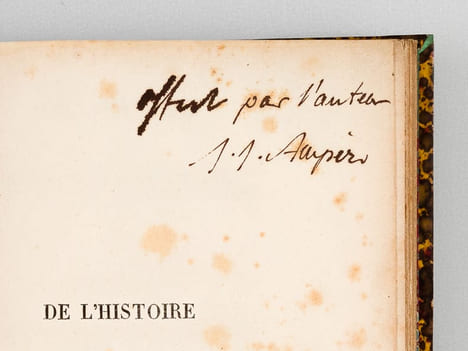 offert par l'auteur
J. J. Ampère
DE L'HISTOIRE